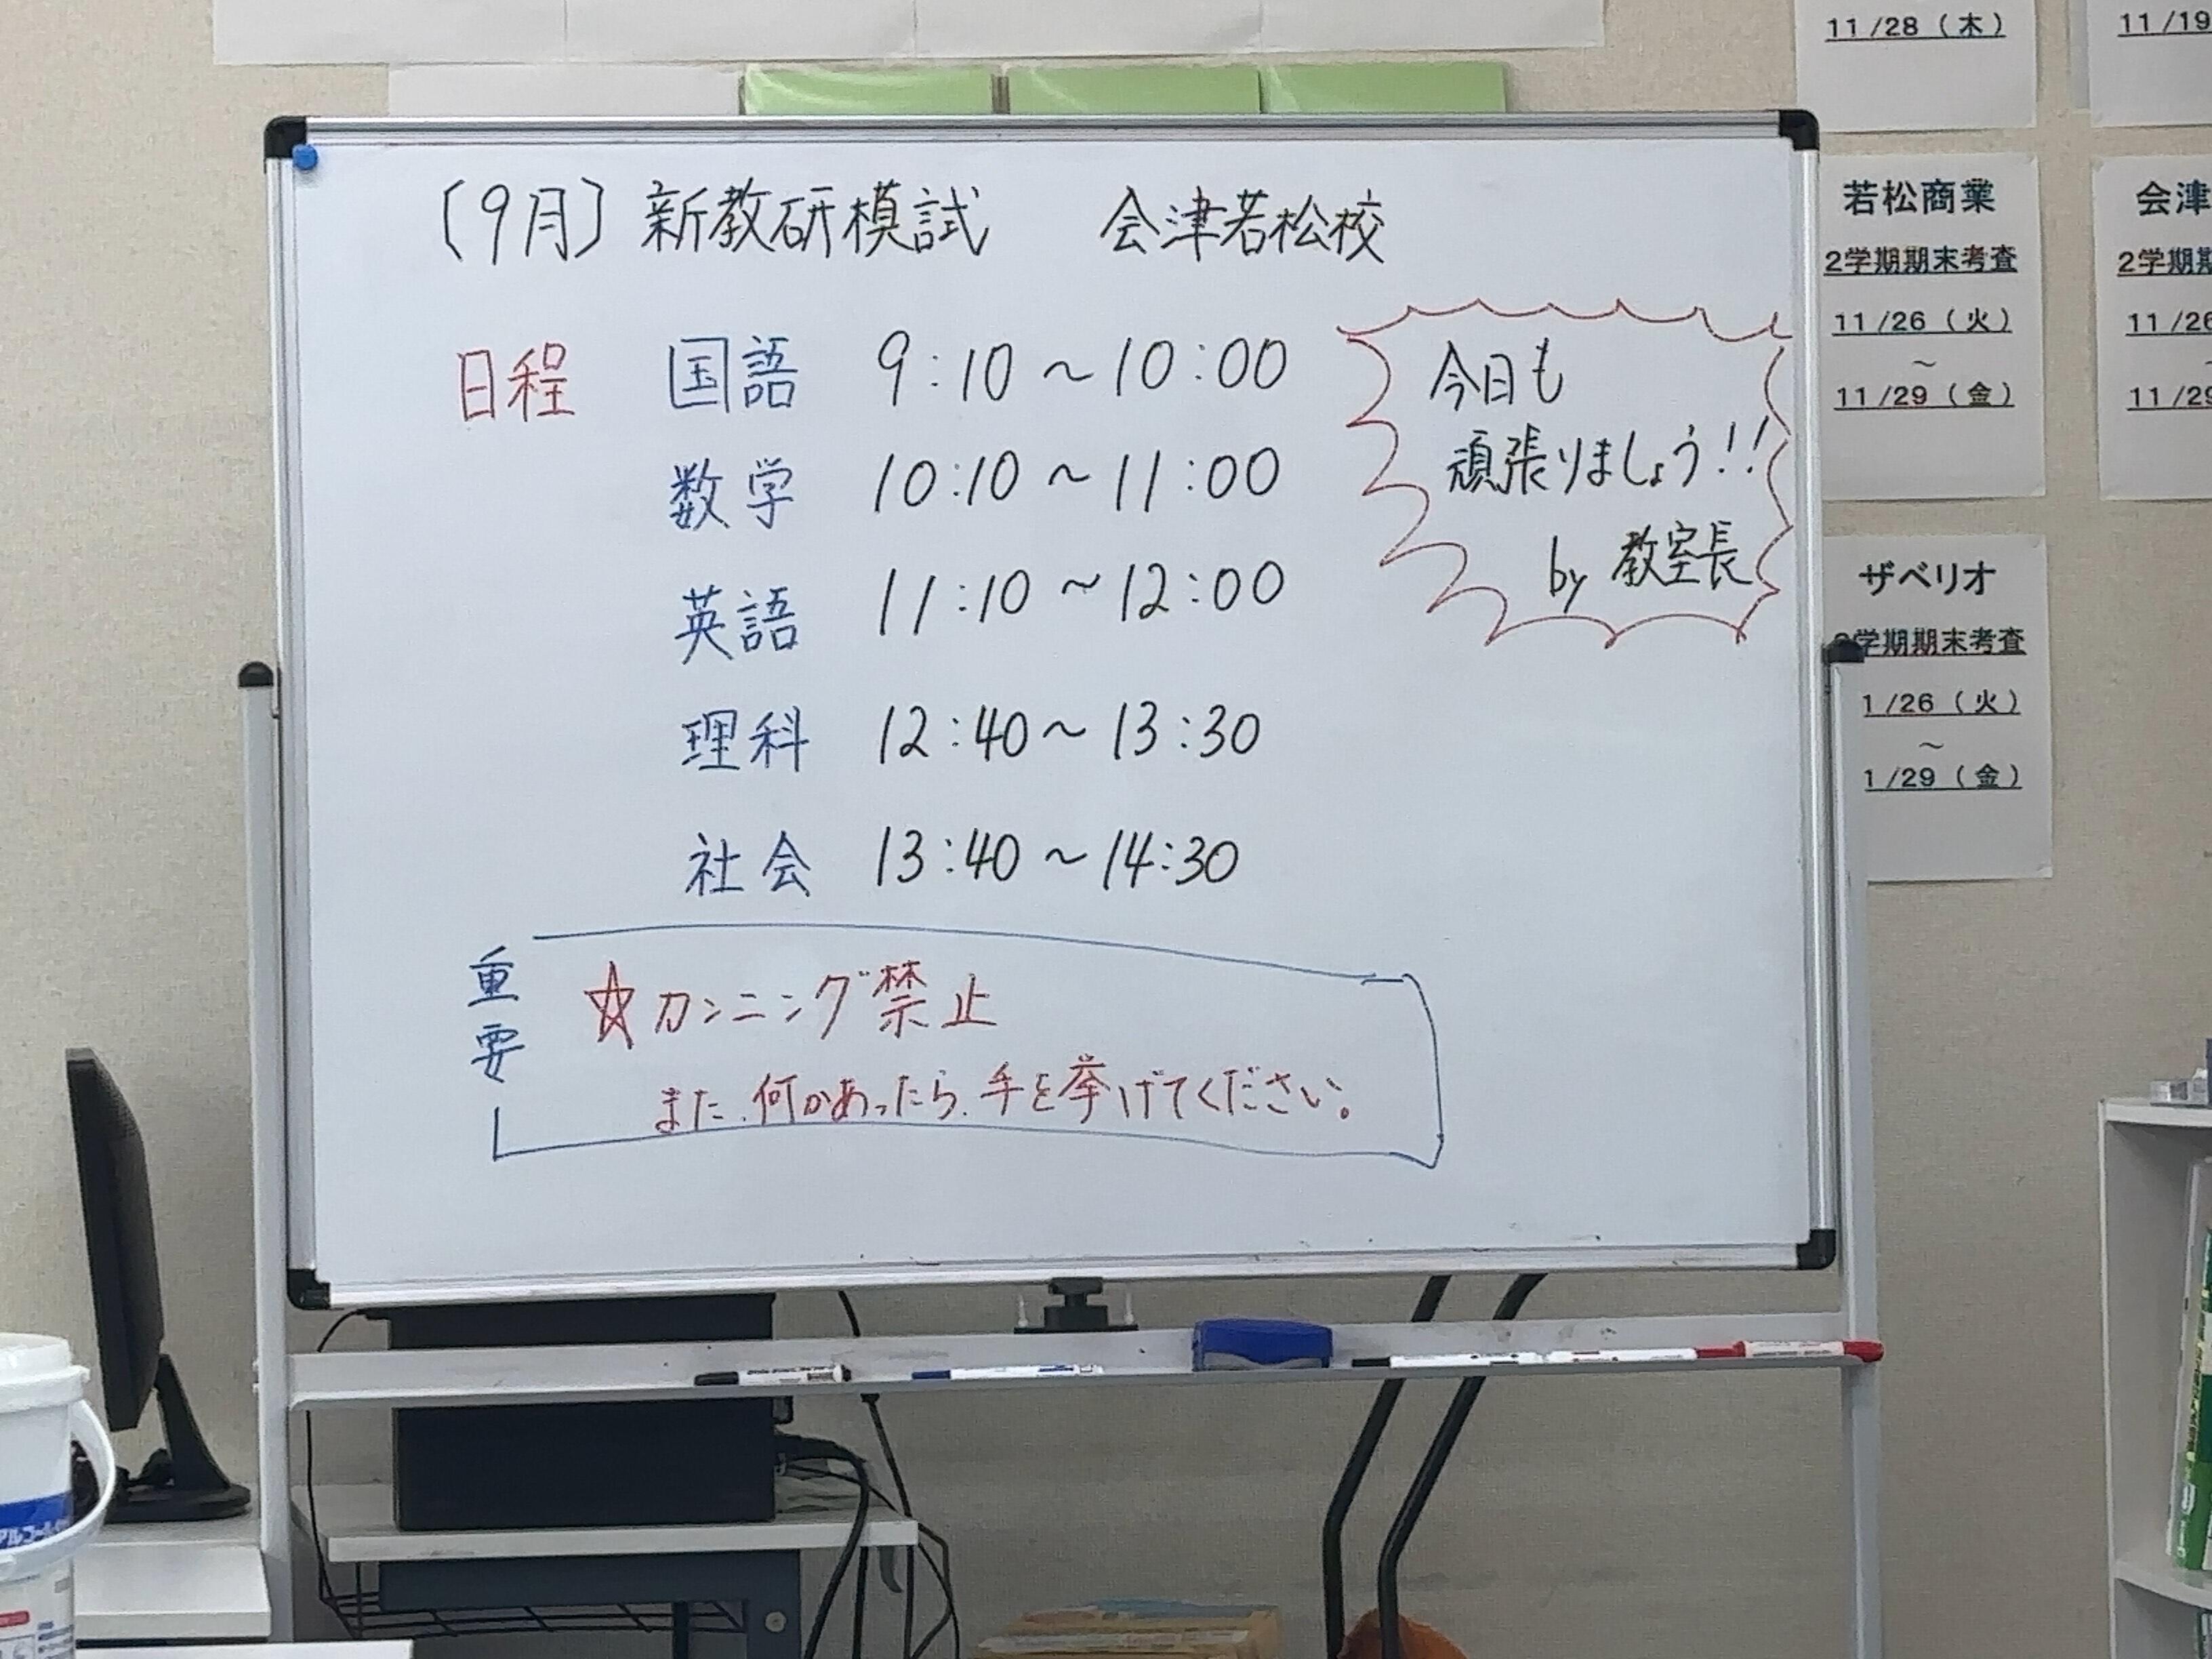 〔9月〕新教研模試　会津若松校
日程　国語　9:10～10:00
数学　10:10～11:00
英語　11:10～12:00
理科　12:40～13:30
社会　13:40～14:30
今日も
頑張りましょう!!
by 教室長
重要
☆カンニング禁止
また、何かあったら、手を挙げてください。
11/28（木）
11/19
若松商業
2学期期末考査
11/26（火）
～
11/29（金）
会津
2学期
11/26
～
11/29
ザベリオ
学期期末考査
1/26（火）
～
1/29（金）
アルコール